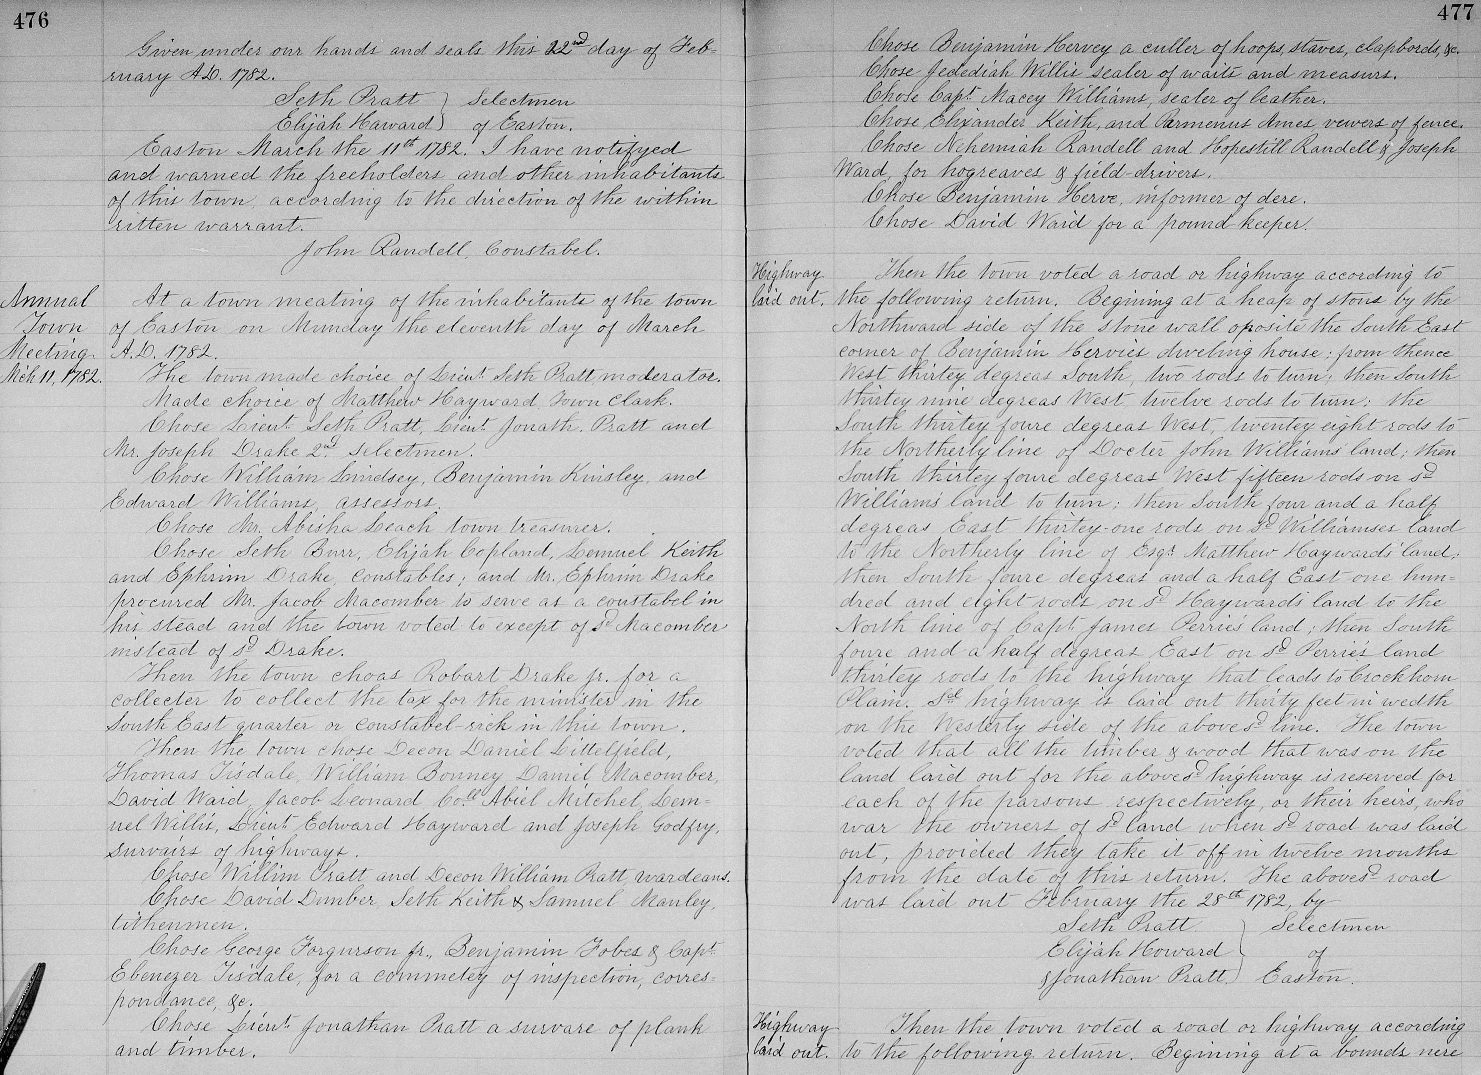 476
Given under our hands and seals this 22nd day of Feb-
ruary A.D. 1782.
Seth Pratt } Selectmen
Elijah Haward } of Easton.
Easton March the 11th 1782. I have notifyed
and warned the freeholders and other inhabitants
of this town, according to the direction of the within
ritten warrant.
John Randell, Constabel.
Annual
Town
Meeting.
Mch 11, 1782.
At a town meating of the inhabitants of the town
of Easton on Munday the eleventh day of March
A.D. 1782.
The town made choice of Lieut. Seth Pratt, moderator.
Made choice of Matthew Hayward, Town Clark.
Chose Lieut. Seth Pratt, Lieut. Jonath. Pratt and
Mr. Joseph Drake 2nd, Selectmen.
Chose William Lindsey, Benjamin Kinsley, and
Edward Williams, assessors.
Chose Mr. Abisha Leach town treasurer.
Chose Seth Burr, Elijah Copland, Lemuel Keith
and Ephrim Drake, Constables; and Mr. Ephrim Drake
procured Mr. Jacob Macomber to serve as a constabel in
his stead and the town voted to except of sd Macomber
instead of sd Drake.
Then the town choas Robart Drake jr. for a
collecter to collect the tax for the minister in the
South East quarter or constabel-rick in this town.
Then the town chose Decon Daniel Littelfield,
Thomas Tisdale, William Bonney, Daniel Macomber,
David Waid, Jacob Leonard, Coll. Abiel Mitchel, Lem-
uel Willis, Lieut. Edward Hayward and Joseph Godfry,
survairs of highways.
Chose Willim Pratt and Decon William Pratt, wardeans.
Chose David Dunber, Seth Keith & Samuel Manley,
tithenmen.
Chose George Forgurson jr., Benjamin Fobes & Capt.
Ebenezer Tisdale, for a commetey of inspection, corres-
pondance, &c.
Chose Lieut. Jonathan Pratt a survare of plank
and timber.
477
Chose Benjamin Hervey a culler of hoops, staves, clapbords, &c.
Chose Jedediah Willis sealer of waits and measurs.
Chose Capt. Macey Williams, sealer of leather.
Chose Elixander Keith, and Parmenus Ames vewers of fence.
Chose Nehemiah Randell and Hopestill Randell & Joseph
Ward, for hogreaves & field-drivers.
Chose Benjamin Herve, informer of dere.
Chose David Waid for a pound keeper.
Highway
laid out.
Then the town voted a road or highway according to
the following return. Begining at a heap of stons by the
Northward side of the stone wall oposite the South East
corner of Benjamin Hervies dweling house; from thence
West thirtey degreas South, two rods to turn; then South
thirtey nine degreas West twelve rods to turn; the
South thirtey foure degreas West, twentey eight rods to
the Northerly line of Docter John Williams' land; then
South thirtey foure degreas West fifteen rods on sd
Williams' land to turn; then South four and a half
degreas East thirtey-one rods on sd Williamses land
to the Northerly line of Esqr. Matthew Haywards' land;
then South foure degreas and a half East one hun-
dred and eight rods on sd Hayward's land to the
North line of Capt. James Perrie's land; then South
foure and a half degreas East on sd Perrie's land
thirtey rods to the highway that leads to Crockhorn
Plain. Sd highway is laid out thirty feet in wedth
on the Westerly side of the abovesd line. The town
voted that all the timber & wood that was on the
land laid out for the abovesd highway is reserved for
each of the parsons respectively, or their heirs, who
war the owners of sd land when sd road was laid
out, provided they take it off in twelve months
from the date of this return. The abovesd road
was laid out February the 28th 1782, by
Seth Pratt } Selectmen
Elijah Howard } of
& Jonathan Pratt. } Easton.
Highway
laid out.
Then the town voted a road or highway according
to the following return. Begining at a bounds nere